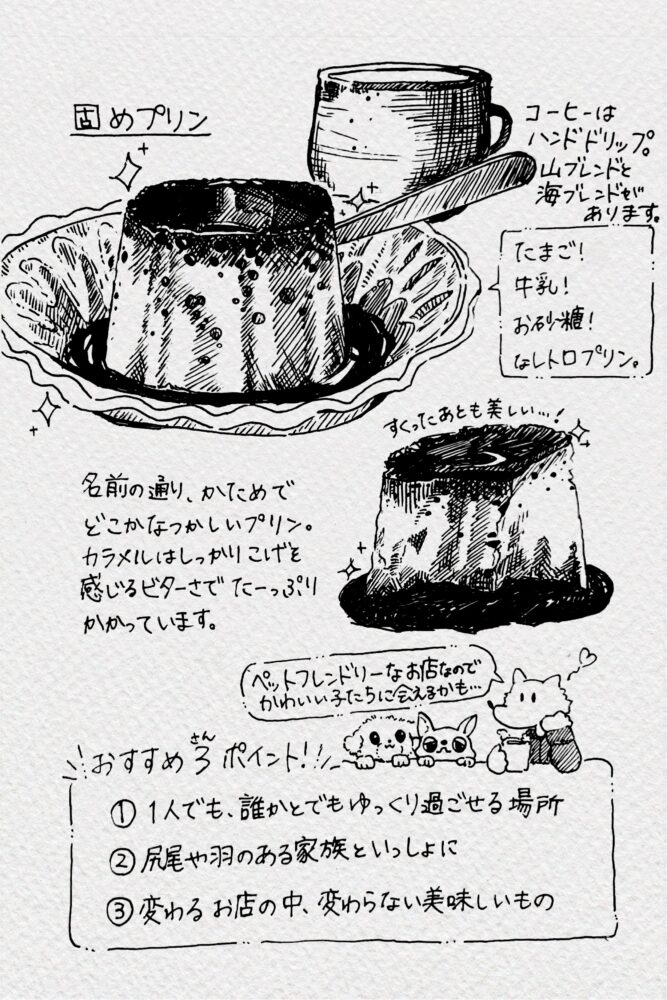 固めプリン
コーヒーは
ハンドドリップ。
山ブレンドと
海ブレンドが
あります。
たまご!
牛乳!
お砂糖!
なレトロプリン。
すくったあとも美しい…!
名前の通り、かためで
どこかなつかしいプリン。
カラメルはしっかりこげを
感じるビターさで たーっぷり
かかっています。
ペットフレンドリーなお店なので
かわいい子たちに会えるかも…
さん
おすすめ3ポイント!!
① 1人でも、誰かとでもゆっくり過ごせる場所
② 尻尾や羽のある家族といっしょに
③ 変わるお店の中、変わらない美味しいもの